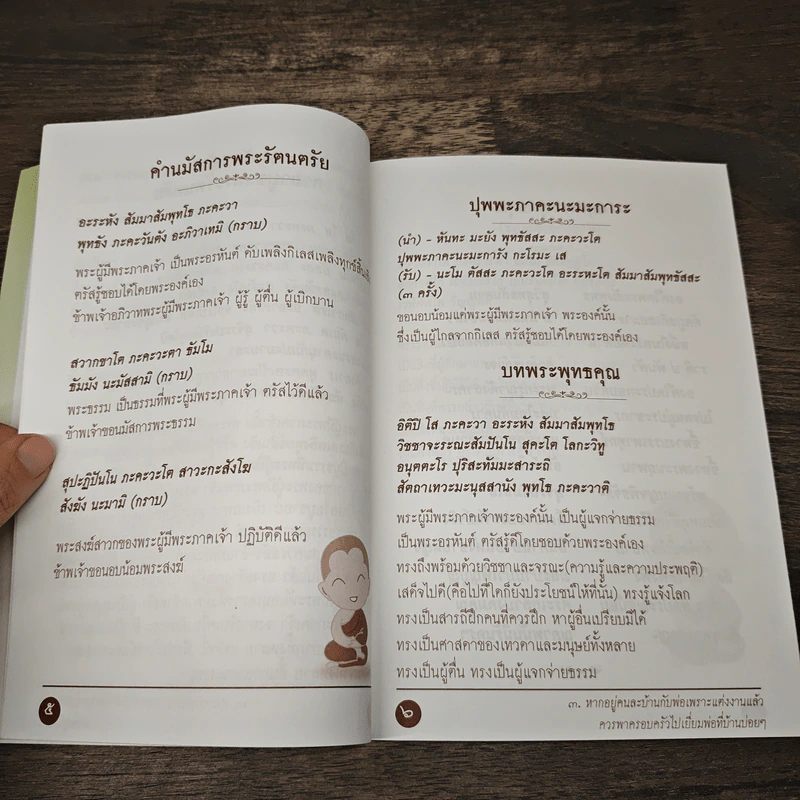 คำนมัสการพระรัตนตรัย
อะระหัง สัมมาสัมพุทโธ ภะคะวา
พุทธัง ภะคะวันตัง อะภิวาเทมิ (กราบ)
พระผู้มีพระภาคเจ้า เป็นพระอรหันต์ ดับเพลิงกิเลสเพลิงทุกข์สิ้นเชิง
ตรัสรู้ชอบได้โดยพระองค์เอง
ข้าพเจ้าอภิวาทพระผู้มีพระภาคเจ้า ผู้รู้ ผู้ตื่น ผู้เบิกบาน
สวากขาโต ภะคะวะตา ธัมโม
ธัมมัง นะมัสสามิ (กราบ)
พระธรรม เป็นธรรมที่พระผู้มีพระภาคเจ้า ตรัสไว้ดีแล้ว
ข้าพเจ้าขอนมัสการพระธรรม
สุปะฏิปันโน ภะคะวะโต สาวะกะสังโฆ
สังฆัง นะมามิ (กราบ)
พระสงฆ์สาวกของพระผู้มีพระภาคเจ้า ปฏิบัติดีแล้ว
ข้าพเจ้าขอนอบน้อมพระสงฆ์
๕
ปุพพะภาคะนะมะการะ
(นำ) - หันทะ มะยัง พุทธัสสะ ภะคะวะโต
ปุพพะภาคะนะมะการัง กะโรมะ เส
(รับ) - นะโม ตัสสะ ภะคะวะโต อะระหะโต สัมมาสัมพุทธัสสะ
(๓ ครั้ง)
ขอนอบน้อมแด่พระผู้มีพระภาคเจ้า พระองค์นั้น
ซึ่งเป็นผู้ไกลจากกิเลส ตรัสรู้ชอบได้โดยพระองค์เอง
บทพระพุทธคุณ
อิติปิ โส ภะคะวา อะระหัง สัมมาสัมพุทโธ
วิชชาจะระณะสัมปันโน สุคะโต โลกะวิทู
อนุตตะโร ปุริสะทัมมะสาระถิ
สัตถาเทวะมะนุสสานัง พุทโธ ภะคะวาติ
พระผู้มีพระภาคเจ้าพระองค์นั้น เป็นผู้แจกจ่ายธรรม
เป็นพระอรหันต์ ตรัสรู้ดีโดยชอบด้วยพระองค์เอง
ทรงถึงพร้อมด้วยวิชชาและจรณะ(ความรู้และความประพฤติ)
เสด็จไปดี(คือไปที่ใดก็ยังประโยชน์ให้ที่นั้น) ทรงรู้แจ้งโลก
ทรงเป็นสารถีฝึกคนที่ควรฝึก หาผู้อื่นเปรียบมิได้
ทรงเป็นศาสดาของเทวดาและมนุษย์ทั้งหลาย
ทรงเป็นผู้ตื่น ทรงเป็นผู้แจกจ่ายธรรม
๖
๓. หากอยู่คนละบ้านกับพ่อเพราะแต่งงานแล้ว
ควรพาครอบครัวไปเยี่ยมพ่อที่บ้านบ่อยๆ